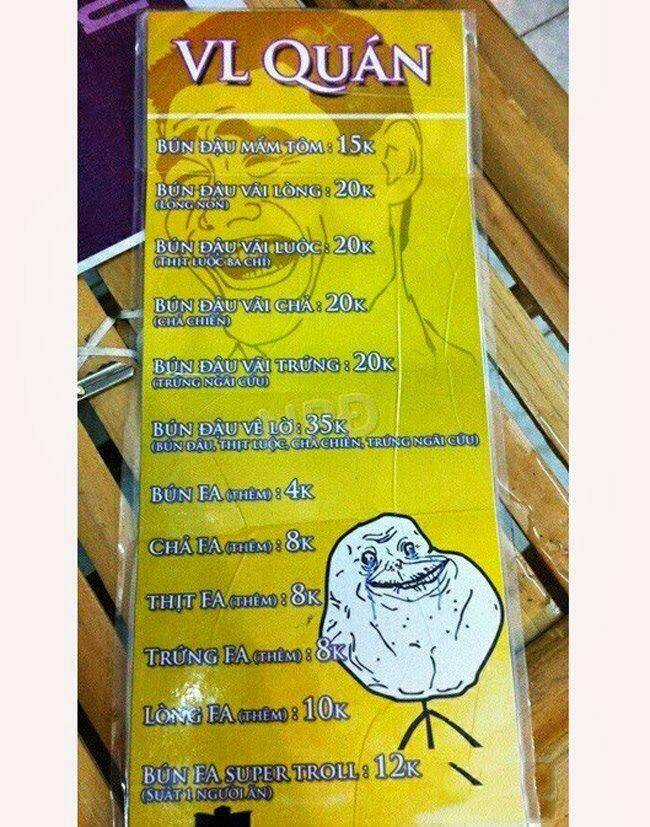 VL QUÁN
BÚN ĐẬU MẮM TÔM : 15K
BÚN ĐẬU VÃI LÒNG : 20K
(LÒNG NON)
BÚN ĐẬU VÃI LUỘC : 20K
(THỊT LUỘC BA CHỈ)
BÚN ĐẬU VÃI CHẢ : 20K
(CHẢ CHIÊN)
BÚN ĐẬU VÃI TRỨNG : 20K
(TRỨNG NGẢI CỨU)
BÚN ĐẬU VÊ LỜ : 35K
(BÚN ĐẬU, THỊT LUỘC, CHẢ CHIÊN, TRỨNG NGẢI CỨU)
BÚN FA (THÊM) : 4K
CHẢ FA (THÊM) : 8K
THỊT FA (THÊM) : 8K
TRỨNG FA (THÊM) : 8K
LÒNG FA (THÊM) : 10K
BÚN FA SUPER TROLL : 12K
(SUẤT 1 NGƯỜI ĂN)